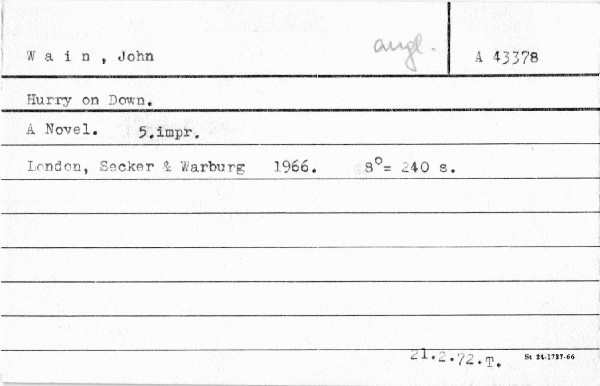 W a i n , John angl. A 43378
Hurry on Down.
A Novel. 5.impr.
London, Secker & Warburg 1966. 8°= 240 s.
21.2.72.T. St 24-1737-66